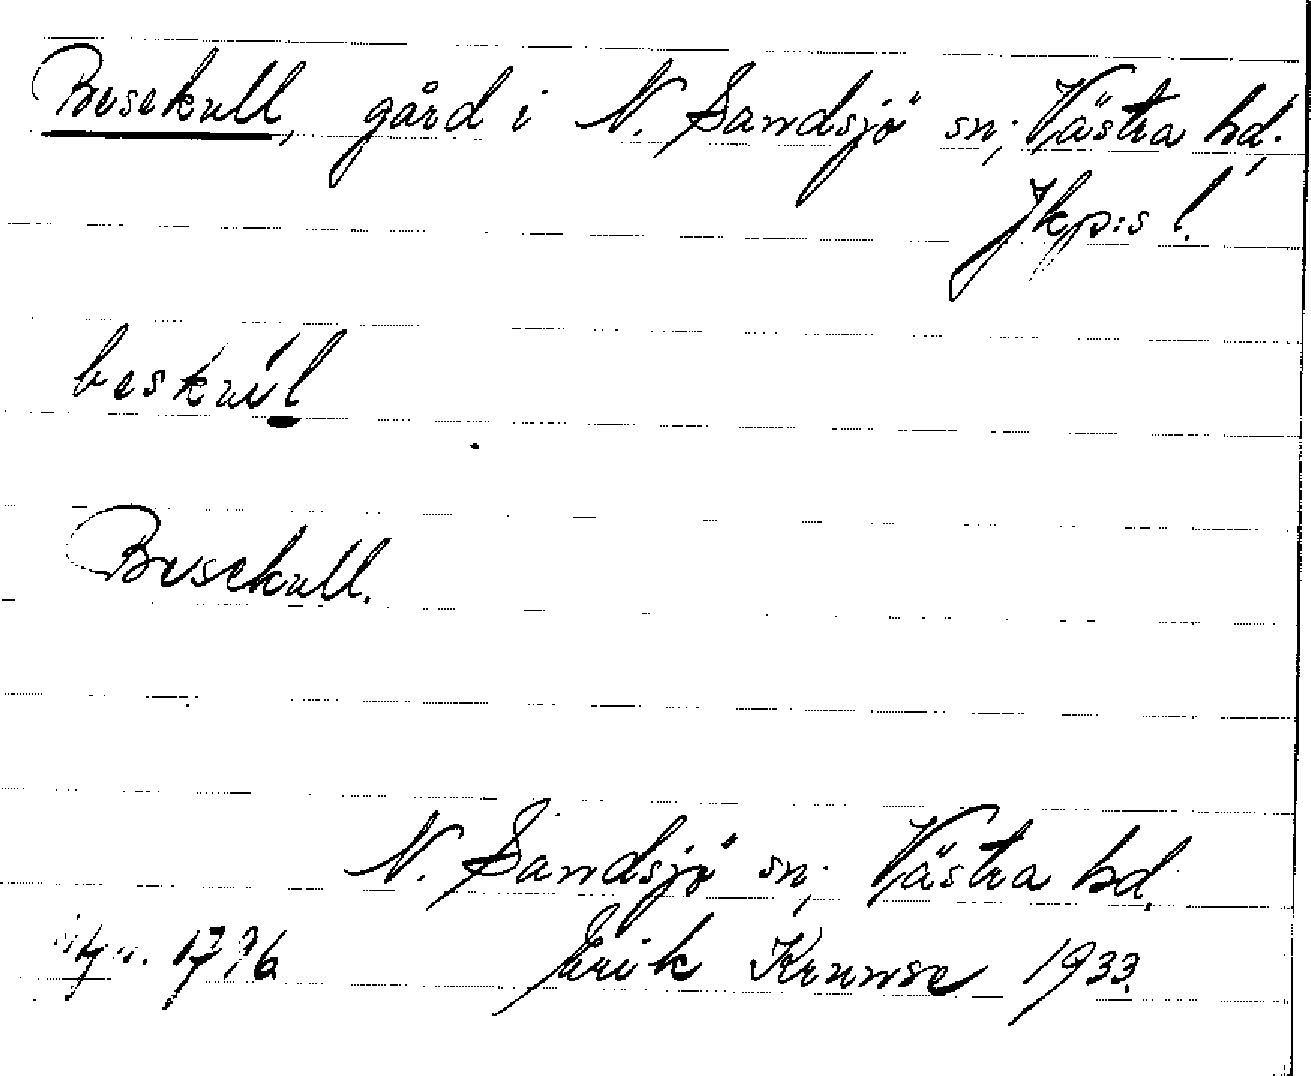 Besekull, gård i N. Sandsjö sn; Västra hd.
Jkp:s l.
beskul
Besekull.
N. Sandsjö sn; Västra hd.
1796 Erik Krunse 1933.